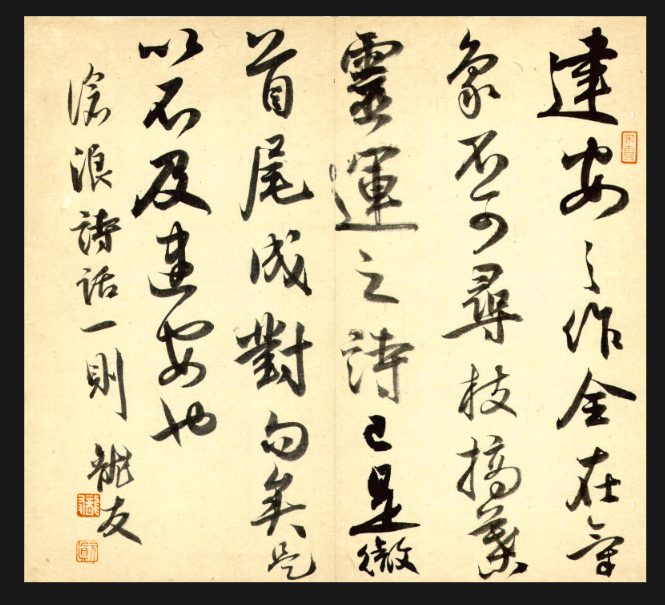 建安之作全在氣
象不可尋枝摘葉
靈運之詩已是徹
首尾成對句矣是
以不及建安也
滄浪詩話一則 龍友